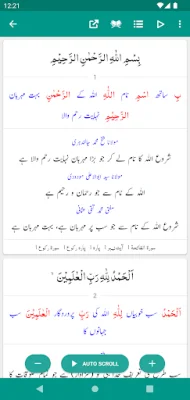 12.21
بِسْمِ اللهِ الرَّحْمٰنِ الرَّحِيْمِ
1
بِ ساتھ اسْمِ نام اللهِ اللہ کے الرَّحْمٰنِ بہت مہربان
الرَّحِيْمِ نہایت رحم والا
مولانا فتح محمد جالندہری
شروع اللہ کا نام لے کر جو بڑا مہربان نہایت رحم والا ہے
مولانا سید ابوالاعلی مودودی
اللہ کے نام سے جو رحمان و رحیم ہے
مفتی محمد تقی عثمانی
شروع اللہ کے نام سے جو سب پر مہربان ہے، بہت مہربان ہے
سورة الفاتحة
اَلْحَمْدُ لِلّٰهِ رَبِّ الْعٰلَمِيْنَ
2
اَلْحَمْدُ سب خوبیاں لِلّٰهِ اللہ کی رَبِّ پروردگار الْعٰلَمِيْنَ سب
جہانوں کا
AUTO SCROLL